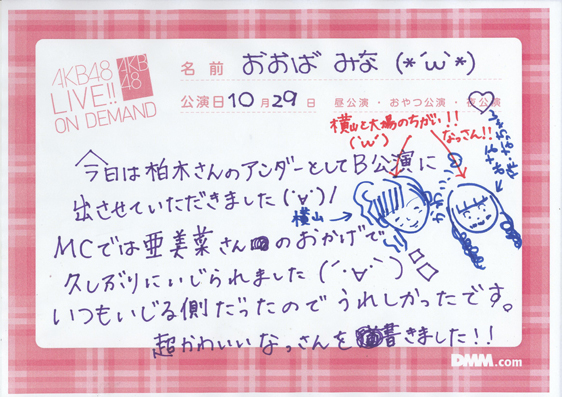 AKB48
LIVE!!
ON DEMAND
AKB
48
名前 おおば みな (*´ω`*)
公演日10月29日 昼公演・おやつ公演・夜公演
横山と大場のちがい!!
(´ω`)
なっさん!!
横山→
今日は柏木さんのアンダーとしてB公演に
出させていただきました(´∀`)!
MCでは亜美菜さんのおかげで
久しぶりにいじられました(´･∀･`)
いつもいじる側だったのでうれしかったです。
超かわいいなっさんを書きました!!
DMM.com